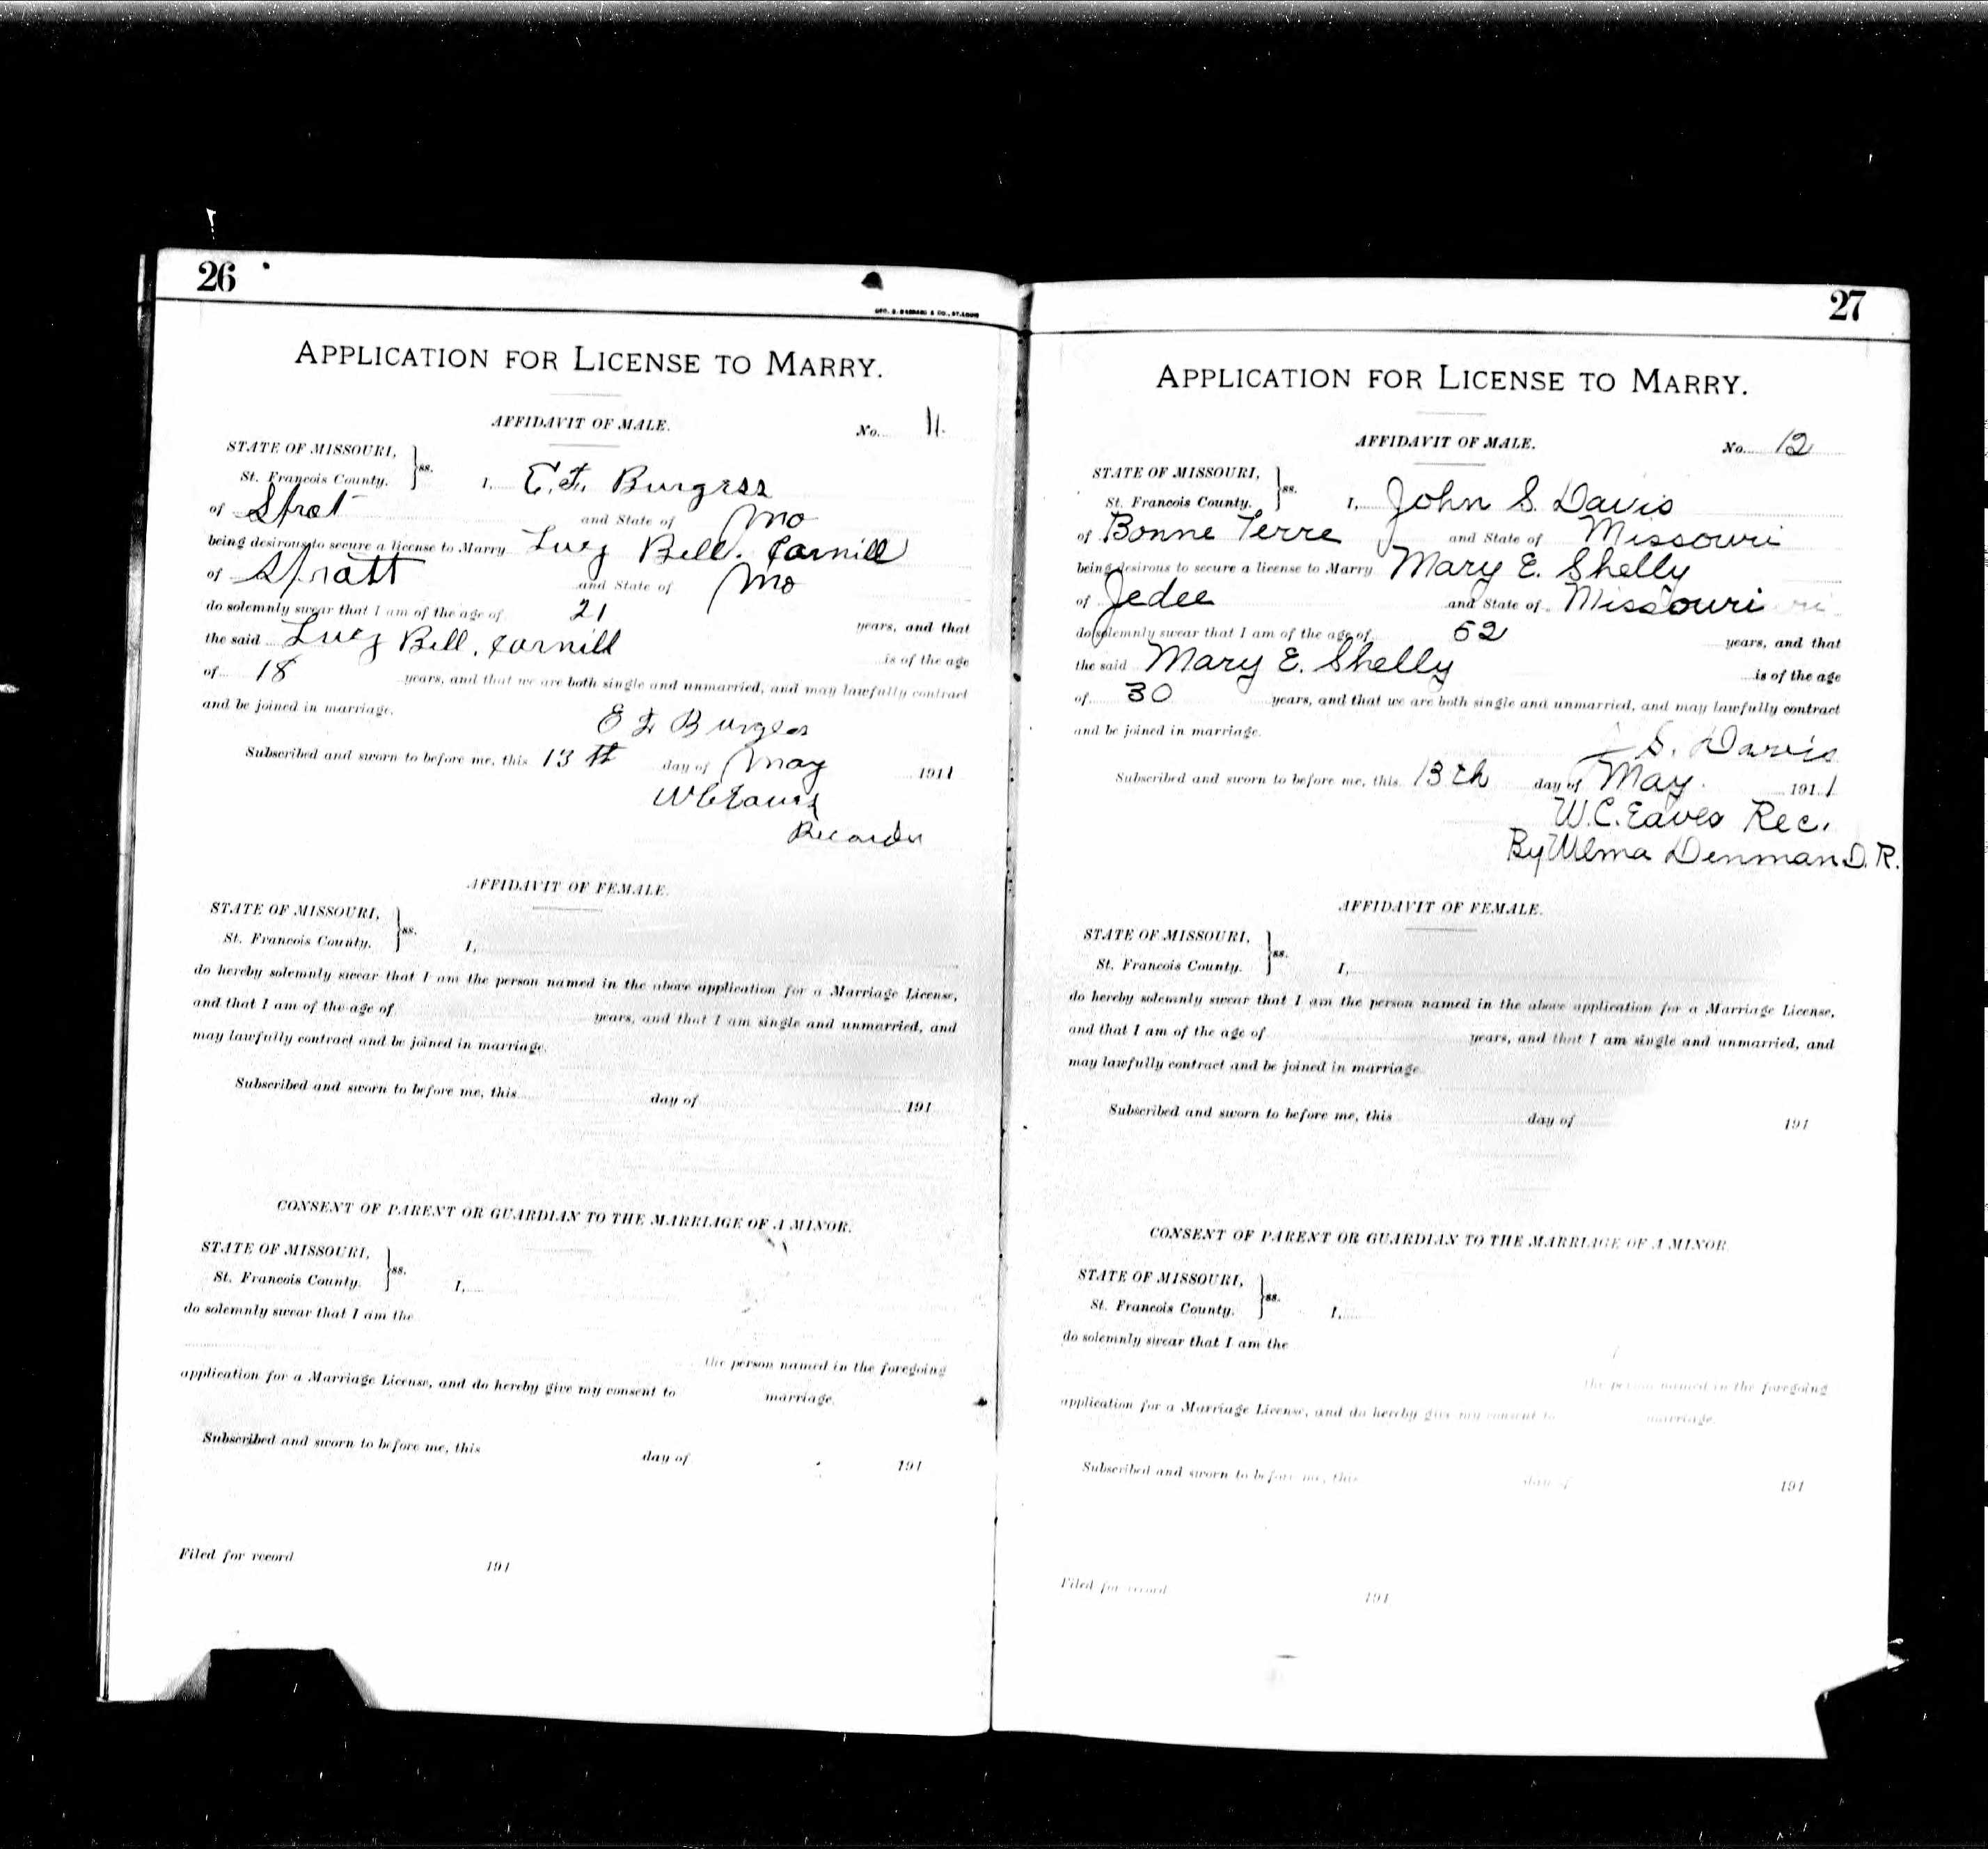 26
GEO. D. BARNARD & CO., ST. LOUIS
APPLICATION FOR LICENSE TO MARRY.
AFFIDAVIT OF MALE. No. 11.
STATE OF MISSOURI,
St. Francois County. } ss. I, E. F. Burgess
of Sprat and State of Mo
being desirous to secure a license to Marry Lucy Bell.
of Spratt and State of Mo
do solemnly swear that I am of the age of 21 years, and that
the said Lucy Bell. is of the age
of 18 years, and that we are both single and unmarried, and may lawfully contract
and be joined in marriage.
E F Burgess
Subscribed and sworn to before me, this 13th day of May 1911
W C Eaves
Recorder
AFFIDAVIT OF FEMALE.
STATE OF MISSOURI,
St. Francois County. } ss. I,
do hereby solemnly swear that I am the person named in the above application for a Marriage License,
and that I am of the age of years, and that I am single and unmarried, and
may lawfully contract and be joined in marriage.
Subscribed and sworn to before me, this day of 191
CONSENT OF PARENT OR GUARDIAN TO THE MARRIAGE OF A MINOR.
STATE OF MISSOURI,
St. Francois County. } ss. I,
do solemnly swear that I am the
the person named in the foregoing
application for a Marriage License, and do hereby give my consent to marriage.
Subscribed and sworn to before me, this day of 191
Filed for record 191
27
APPLICATION FOR LICENSE TO MARRY.
AFFIDAVIT OF MALE. No. 12
STATE OF MISSOURI,
St. Francois County. } ss. I, John S. Davis
of Bonne Terre and State of Missouri
being desirous to secure a license to Marry Mary E. Shelly
of Jedee and State of Missouri
do solemnly swear that I am of the age of 52 years, and that
the said Mary E. Shelly is of the age
of 30 years, and that we are both single and unmarried, and may lawfully contract
and be joined in marriage.
S. Davis
Subscribed and sworn to before me, this 13th day of May. 1911
W.C. Eaves Rec.
By Wilma Denman D.R.
AFFIDAVIT OF FEMALE.
STATE OF MISSOURI,
St. Francois County. } ss. I,
do hereby solemnly swear that I am the person named in the above application for a Marriage License,
and that I am of the age of years, and that I am single and unmarried, and
may lawfully contract and be joined in marriage.
Subscribed and sworn to before me, this day of 191
CONSENT OF PARENT OR GUARDIAN TO THE MARRIAGE OF A MINOR.
STATE OF MISSOURI,
St. Francois County. } ss. I,
do solemnly swear that I am the
the person named in the foregoing
application for a Marriage License, and do hereby give my consent to marriage.
Subscribed and sworn to before me, this day of 191
Filed for record 191